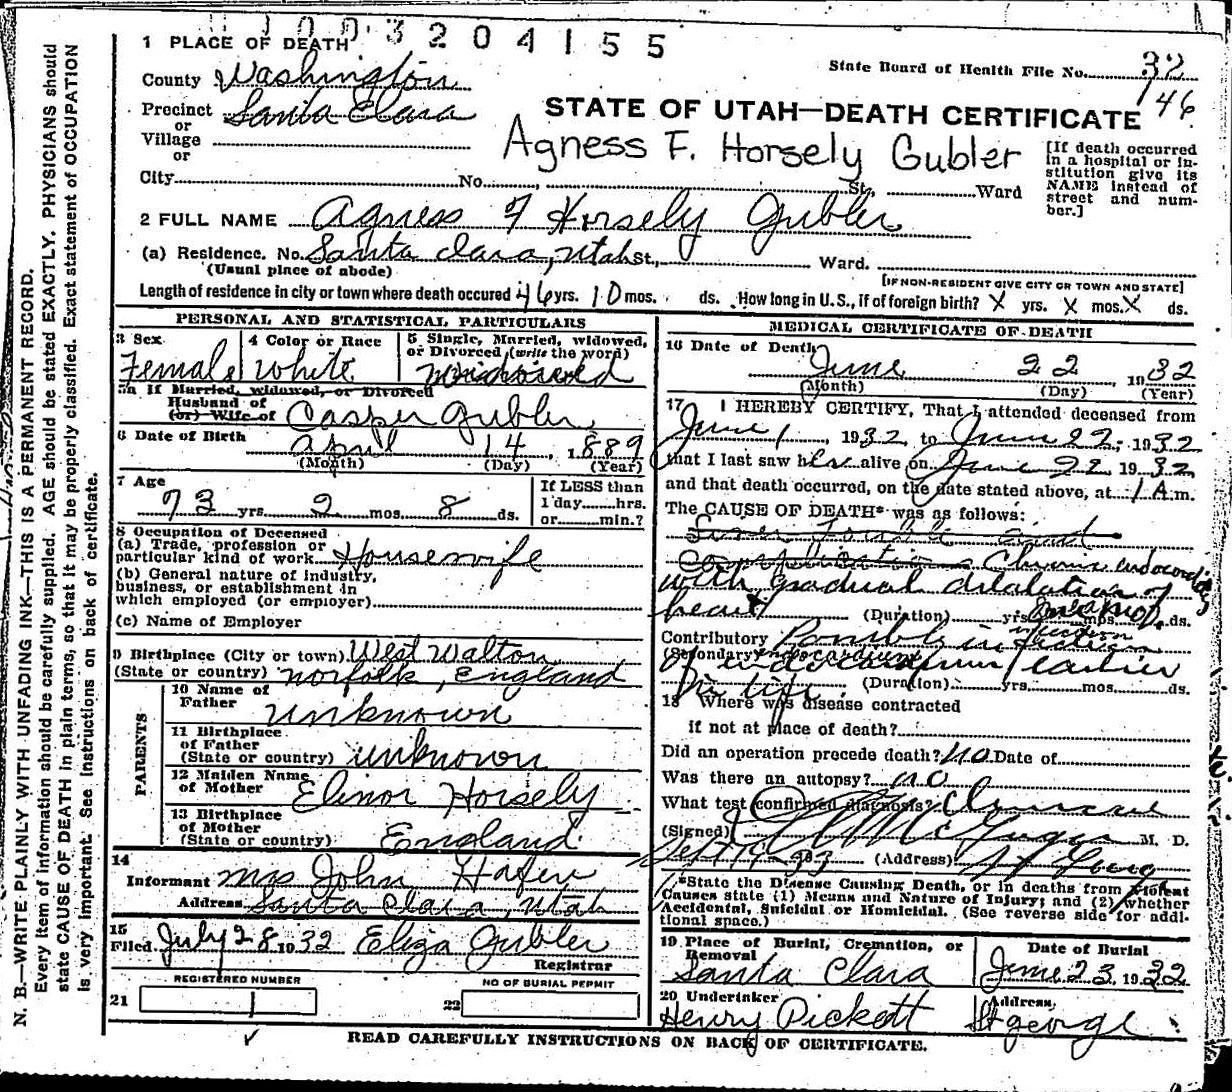 1003204155
1 PLACE OF DEATH
State Board of Health File No. 32
146
County Washington
Precinct Santa Clara
or
Village
or
STATE OF UTAH—DEATH CERTIFICATE
Agness F. Horsely Gubler
[If death occurred in a hospital or institution give its NAME instead of street and number.]
City No. St. Ward
2 FULL NAME Agness F Horsely Gubler
(a) Residence. No. Santa Clara, Utah St., Ward.
(Usual place of abode)
[IF NON-RESIDENT GIVE CITY OR TOWN AND STATE]
Length of residence in city or town where death occured 46 yrs. 10 mos. ds. How long in U.S., if of foreign birth? X yrs. X mos. X ds.
PERSONAL AND STATISTICAL PARTICULARS
3 Sex
Female
4 Color or Race
White
5 Single, Married, widowed, or Divorced (write the word)
Widowed
5a If Married, widowed, or Divorced
Husband of
(or) Wife of Casper Gubler
6 Date of Birth
April 14, 1889
(Month) (Day) (Year)
7 Age
73 yrs. 2 mos. 8 ds.
If LESS than
1 day......hrs.
or......min.?
8 Occupation of Deceased
(a) Trade, profession or
particular kind of work Housewife
(b) General nature of industry,
business, or establishment in
which employed (or employer)
(c) Name of Employer
9 Birthplace (City or town) West Walton
(State or country) Norfolk, England
PARENTS
10 Name of
Father unknown
11 Birthplace
of Father
(State or country) unknown
12 Maiden Name
of Mother Elinor Horsely
13 Birthplace
of Mother
(State or country) England
14
Informant Mrs John Hafen
Address Santa Clara, Utah
15
Filed July 28 1932 Eliza Gubler
Registrar
REGISTERED NUMBER
21 1
NO OF BURIAL PERMIT
22
MEDICAL CERTIFICATE OF DEATH
16 Date of Death June 22 1932
(Month) (Day) (Year)
17 I HEREBY CERTIFY, That I attended deceased from
June 1, 1932, to June 22, 1932
that I last saw her alive on June 22 1932
and that death occurred, on the date stated above, at 1 A.m.
The CAUSE OF DEATH* was as follows:
Liver Trouble and
complications Chronic endocarditis
with gradual dilatation of
heart (Duration) yrs. mos. ds.
Contributory Possible infection
(Secondary)
of endocardium earlier
in life. (Duration) yrs. mos. ds.
18 Where was disease contracted
if not at place of death?
Did an operation precede death? no Date of
Was there an autopsy? no
What test confirmed diagnosis? Clinical
(Signed) McGregor M. D.
Sept 19 33 (Address) St George
*State the Disease Causing Death, or in deaths from Violent
Causes state (1) Means and Nature of Injury; and (2) whether
Accidental, Suicidal or Homicidal. (See reverse side for additional space.)
19 Place of Burial, Cremation, or
Removal
Santa Clara
Date of Burial
June 23, 1932
20 Undertaker
Henry Pickett
Address,
St George
READ CAREFULLY INSTRUCTIONS ON BACK OF CERTIFICATE.
N. B.—WRITE PLAINLY WITH UNFADING INK—THIS IS A PERMANENT RECORD.
Every item of information should be carefully supplied. AGE should be stated EXACTLY. PHYSICIANS should
state CAUSE OF DEATH in plain terms, so that it may be properly classified. Exact statement of OCCUPATION
is very important. See Instructions on back of certificate.